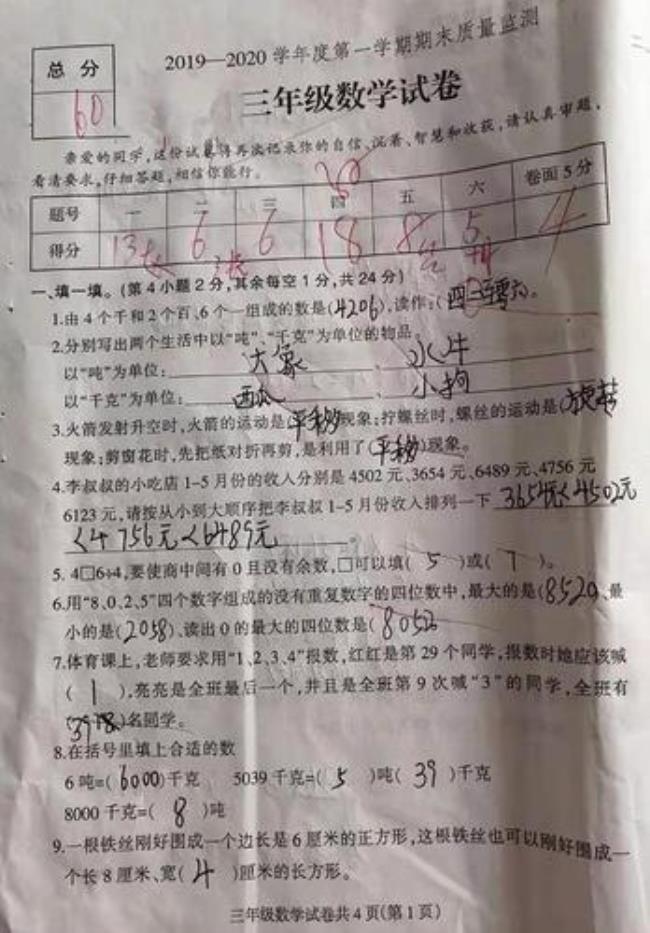 2019—2020学年度第一学期期末质量监测
总分
60
三年级数学试卷
亲爱的同学,这份试卷将再次记录你的自信、沉着、智慧和收获,请认真审题,
看清要求,仔细答题,相信你能行。
30
题号 一 二 三 四 五 六 卷面5分
得分 13 6 6 18 8 5 4
一、填一填。(第4小题2分,其余每空1分,共24分)
1.由4个千和2个百、6个一组成的数是(4206),读作:(四 零六)。
2.分别写出两个生活中以“吨”、“千克”为单位的物品。
以“吨”为单位: 大象 、 水牛
以“千克”为单位: 西瓜 、 小狗
3.火箭发射升空时,火箭的运动是(平移)现象;拧螺丝时,螺丝的运动是(旋转
现象;剪窗花时,先把纸对折再剪,是利用了(平移)现象。
4.李叔叔的小吃店1-5月份的收入分别是4502元、3654元、6489元、4756元
6123元,请按从小到大顺序把李叔叔1-5月份收入排列一下 3654元<4502元
<4756元<6489元 。
5. 4□6÷4,要使商中间有0且没有余数,□可以填( 5 )或( 7 )。
6.用“8、0、2、5”四个数字组成的没有重复数字的四位数中,最大的是(8520),最
小的是(2058)、读出0的最大的四位数是(8052
7.体育课上,老师要求用“1、2、3、4”报数,红红是第29个同学,报数时她应该喊
( 1 ),亮亮是全班最后一个,并且是全班第9次喊“3”的同学,全班有
)名同学。
8.在括号里填上合适的数
6吨=(6000)千克 5039千克=( 5 )吨( 39 )千克
8000千克=( 8 )吨
9.一根铁丝刚好围成一个边长是6厘米的正方形,这根铁丝也可以刚好围成一
个长8厘米、宽( 4 )厘米的长方形。
三年级数学试卷共4页(第1页)